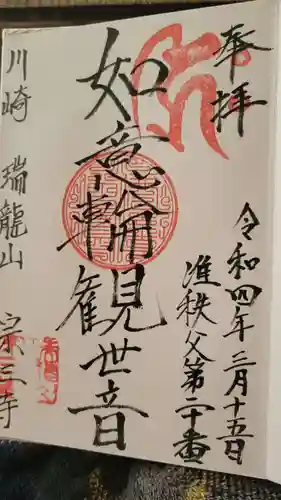 奉拝
令和四年三月十五日
准秩父第二十番
如意輪観世音
川崎 瑞龍山 宗三寺